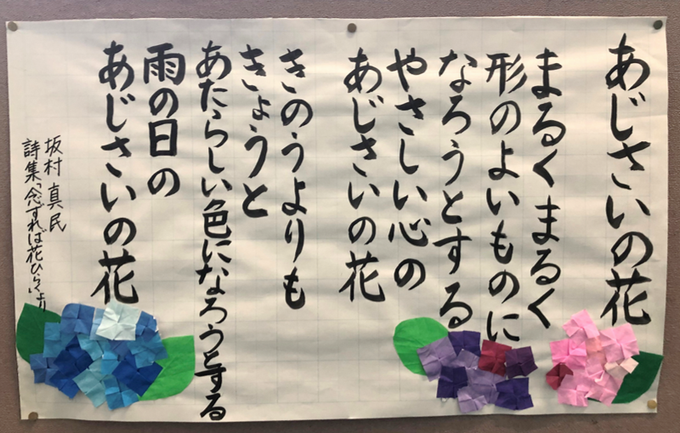 あじさいの花
まるくまるく
形のよいものに
なろうとする
やさしい心の
あじさいの花
きのうよりも
きょうと
あたらしい色になろうとする
雨の日の
あじさいの花
坂村真民
詩集「念ずれば花ひらく」より